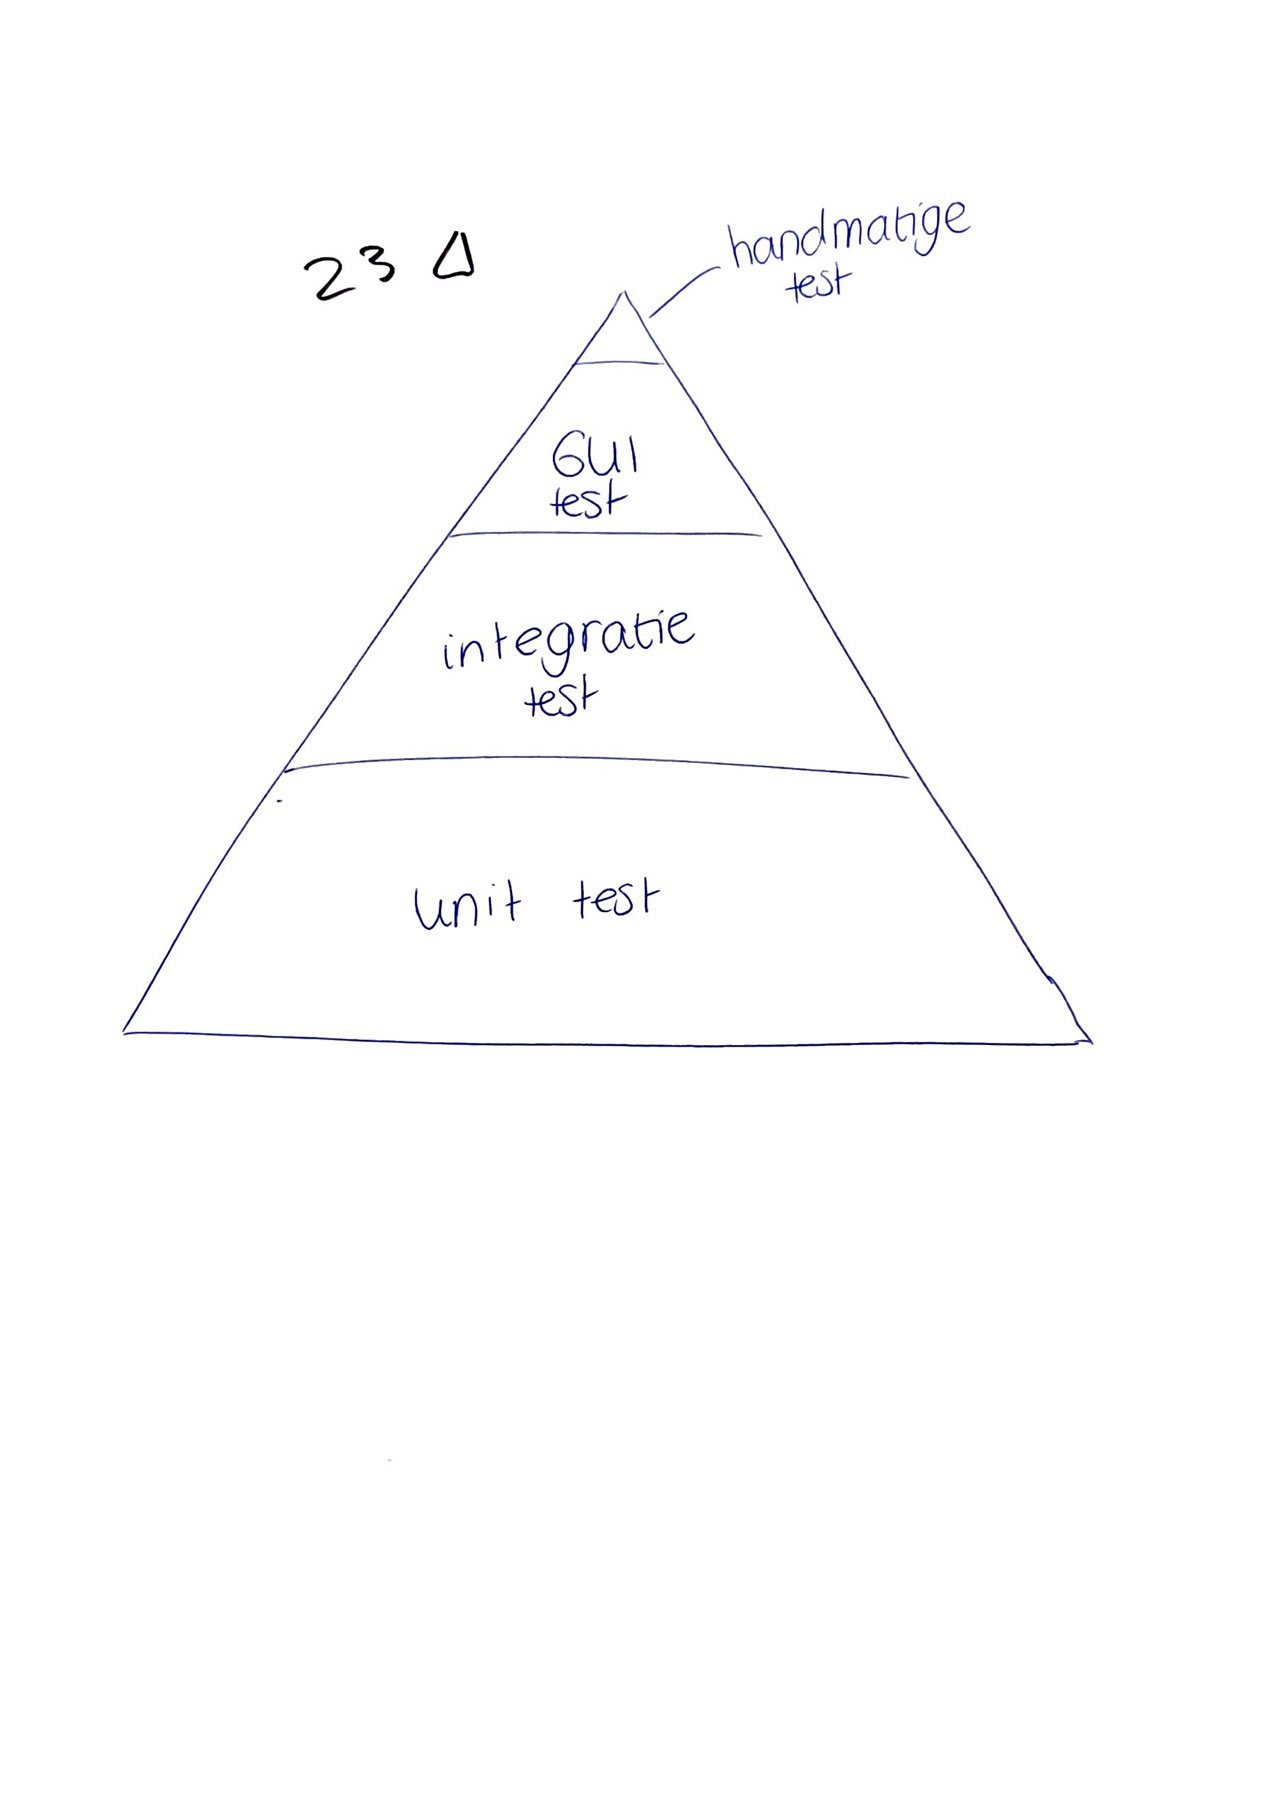 23 Δ
handmatige
test
GUI
test
integratie
test
unit test